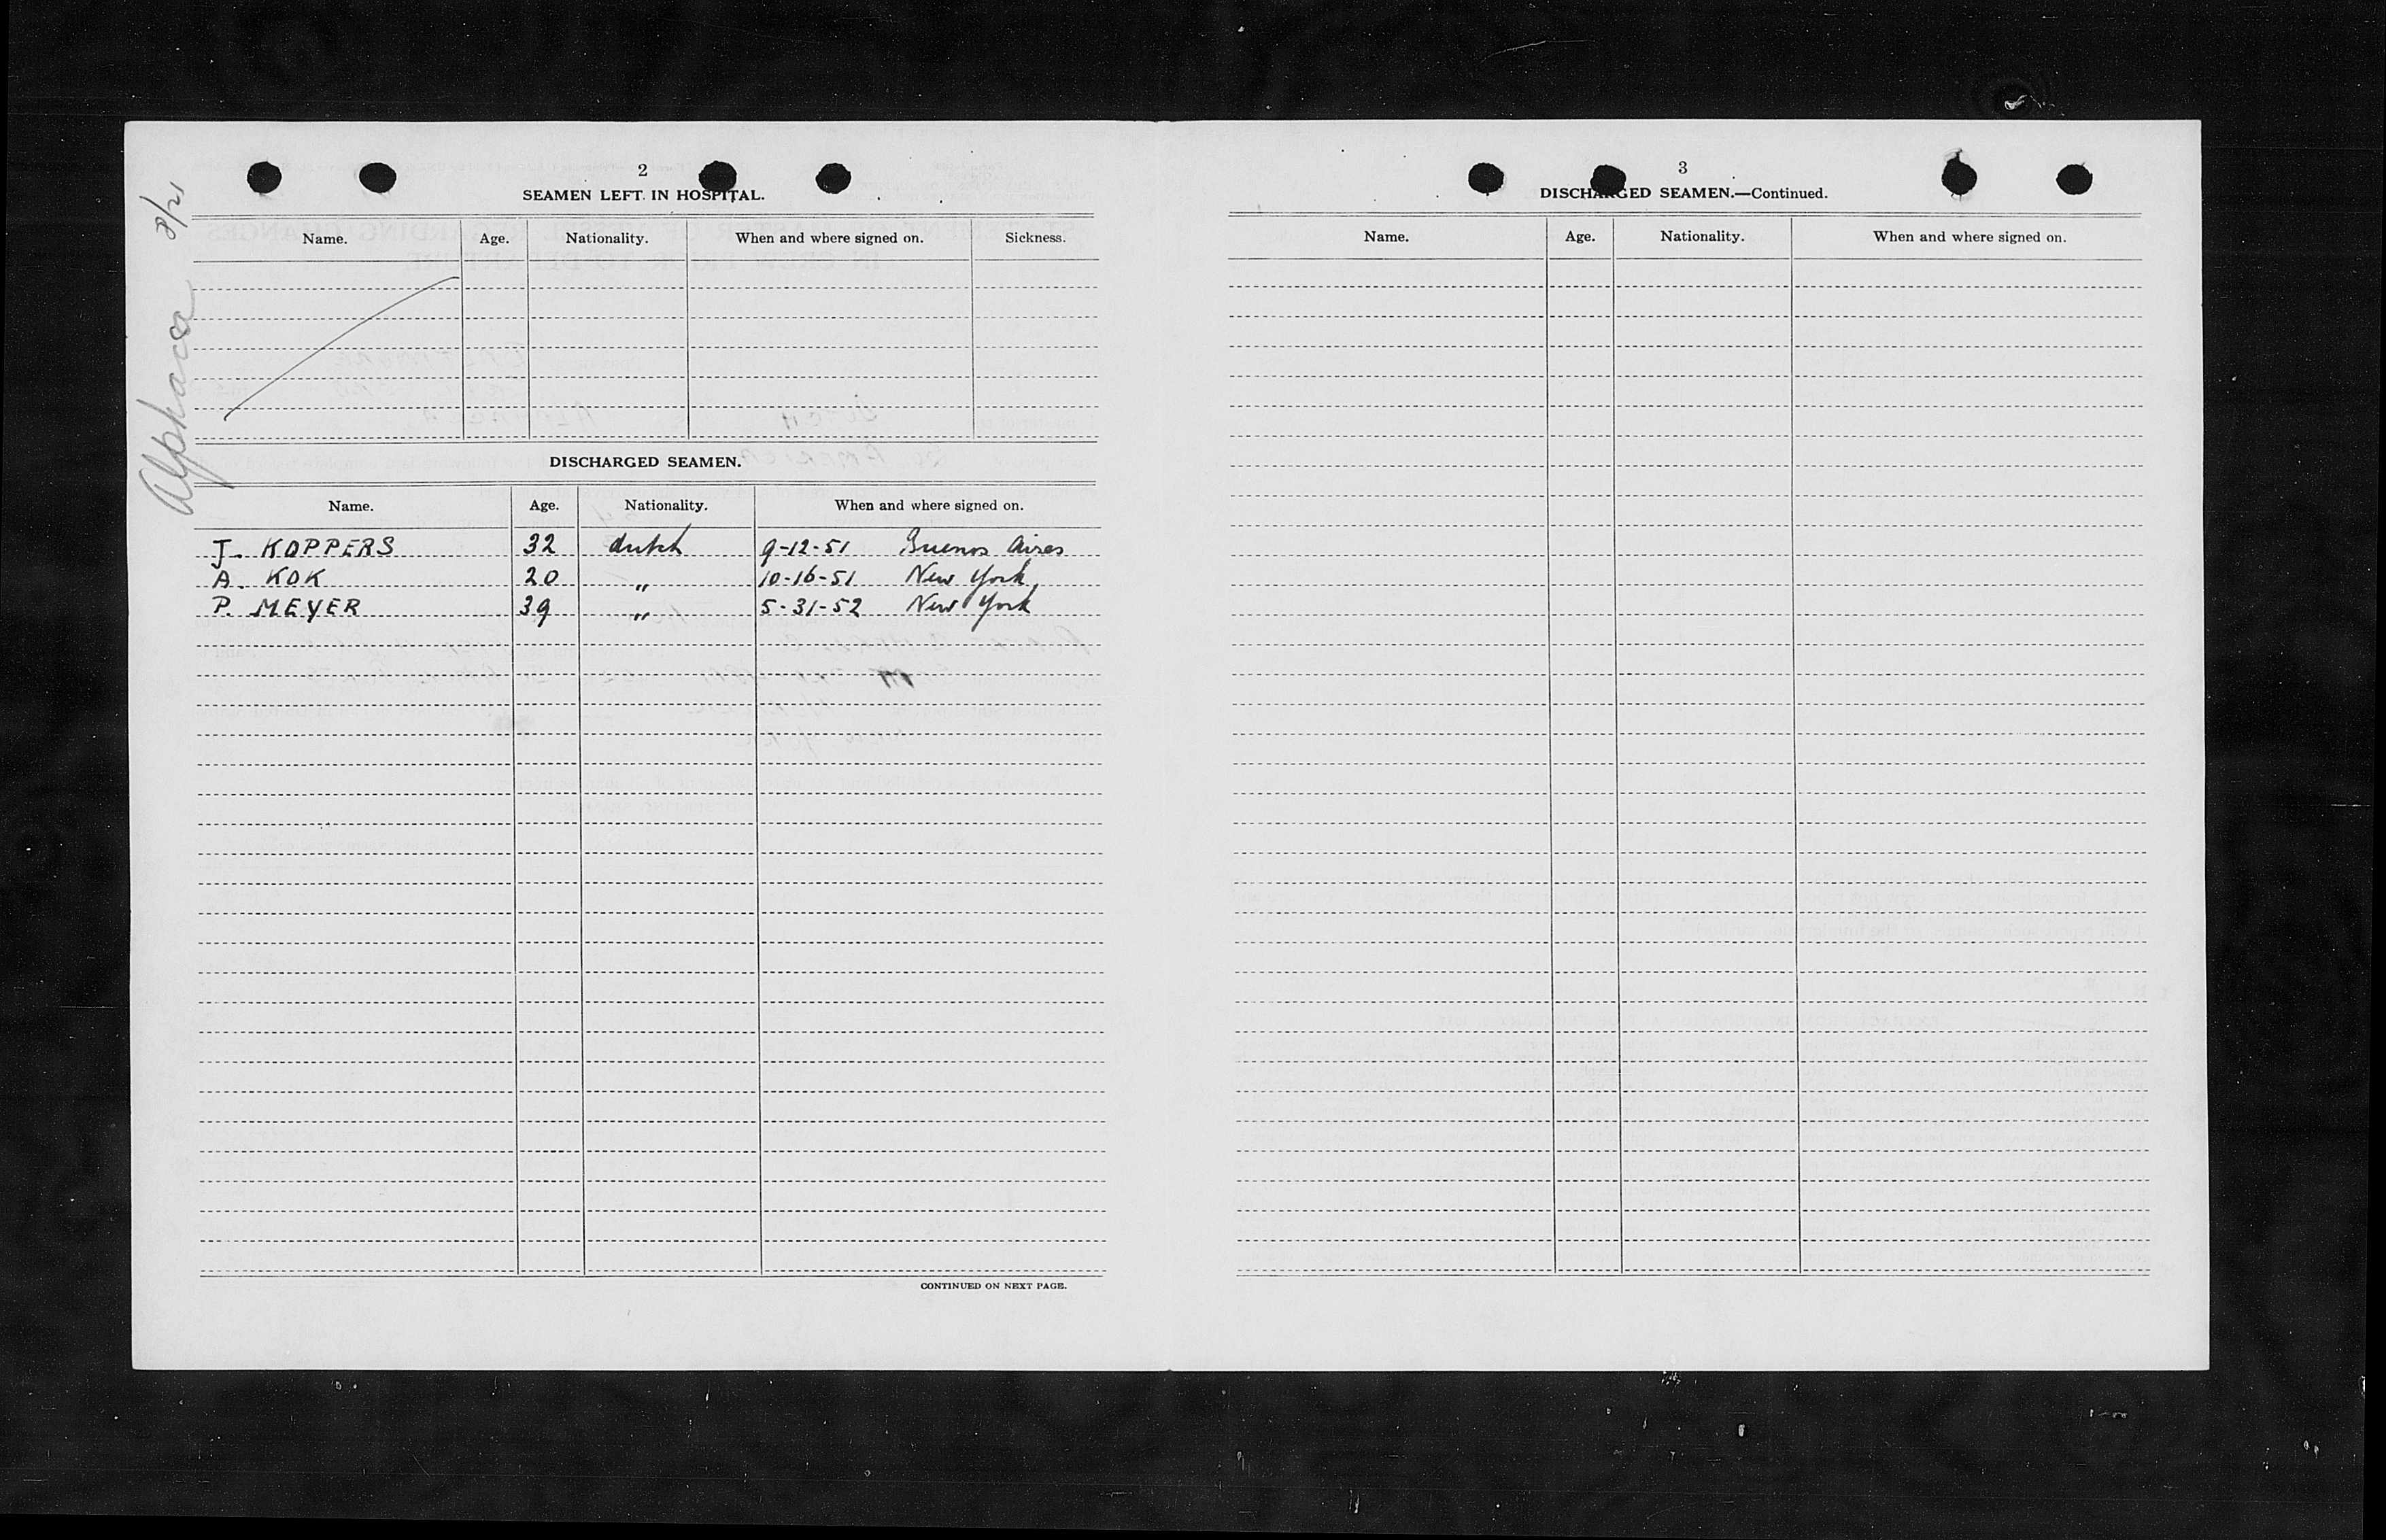 2
SEAMEN LEFT IN HOSPITAL.
Name. Age. Nationality. When and where signed on. Sickness.
Alphacca 8/21
DISCHARGED SEAMEN.
Name. Age. Nationality. When and where signed on.
J. KOPPERS 32 dutch 9-12-51 Buenos Aires
A. KOK 20 " 10-16-51 New York
P. MEYER 39 " 5-31-52 New York
CONTINUED ON NEXT PAGE.
3
DISCHARGED SEAMEN.—Continued.
Name. Age. Nationality. When and where signed on.